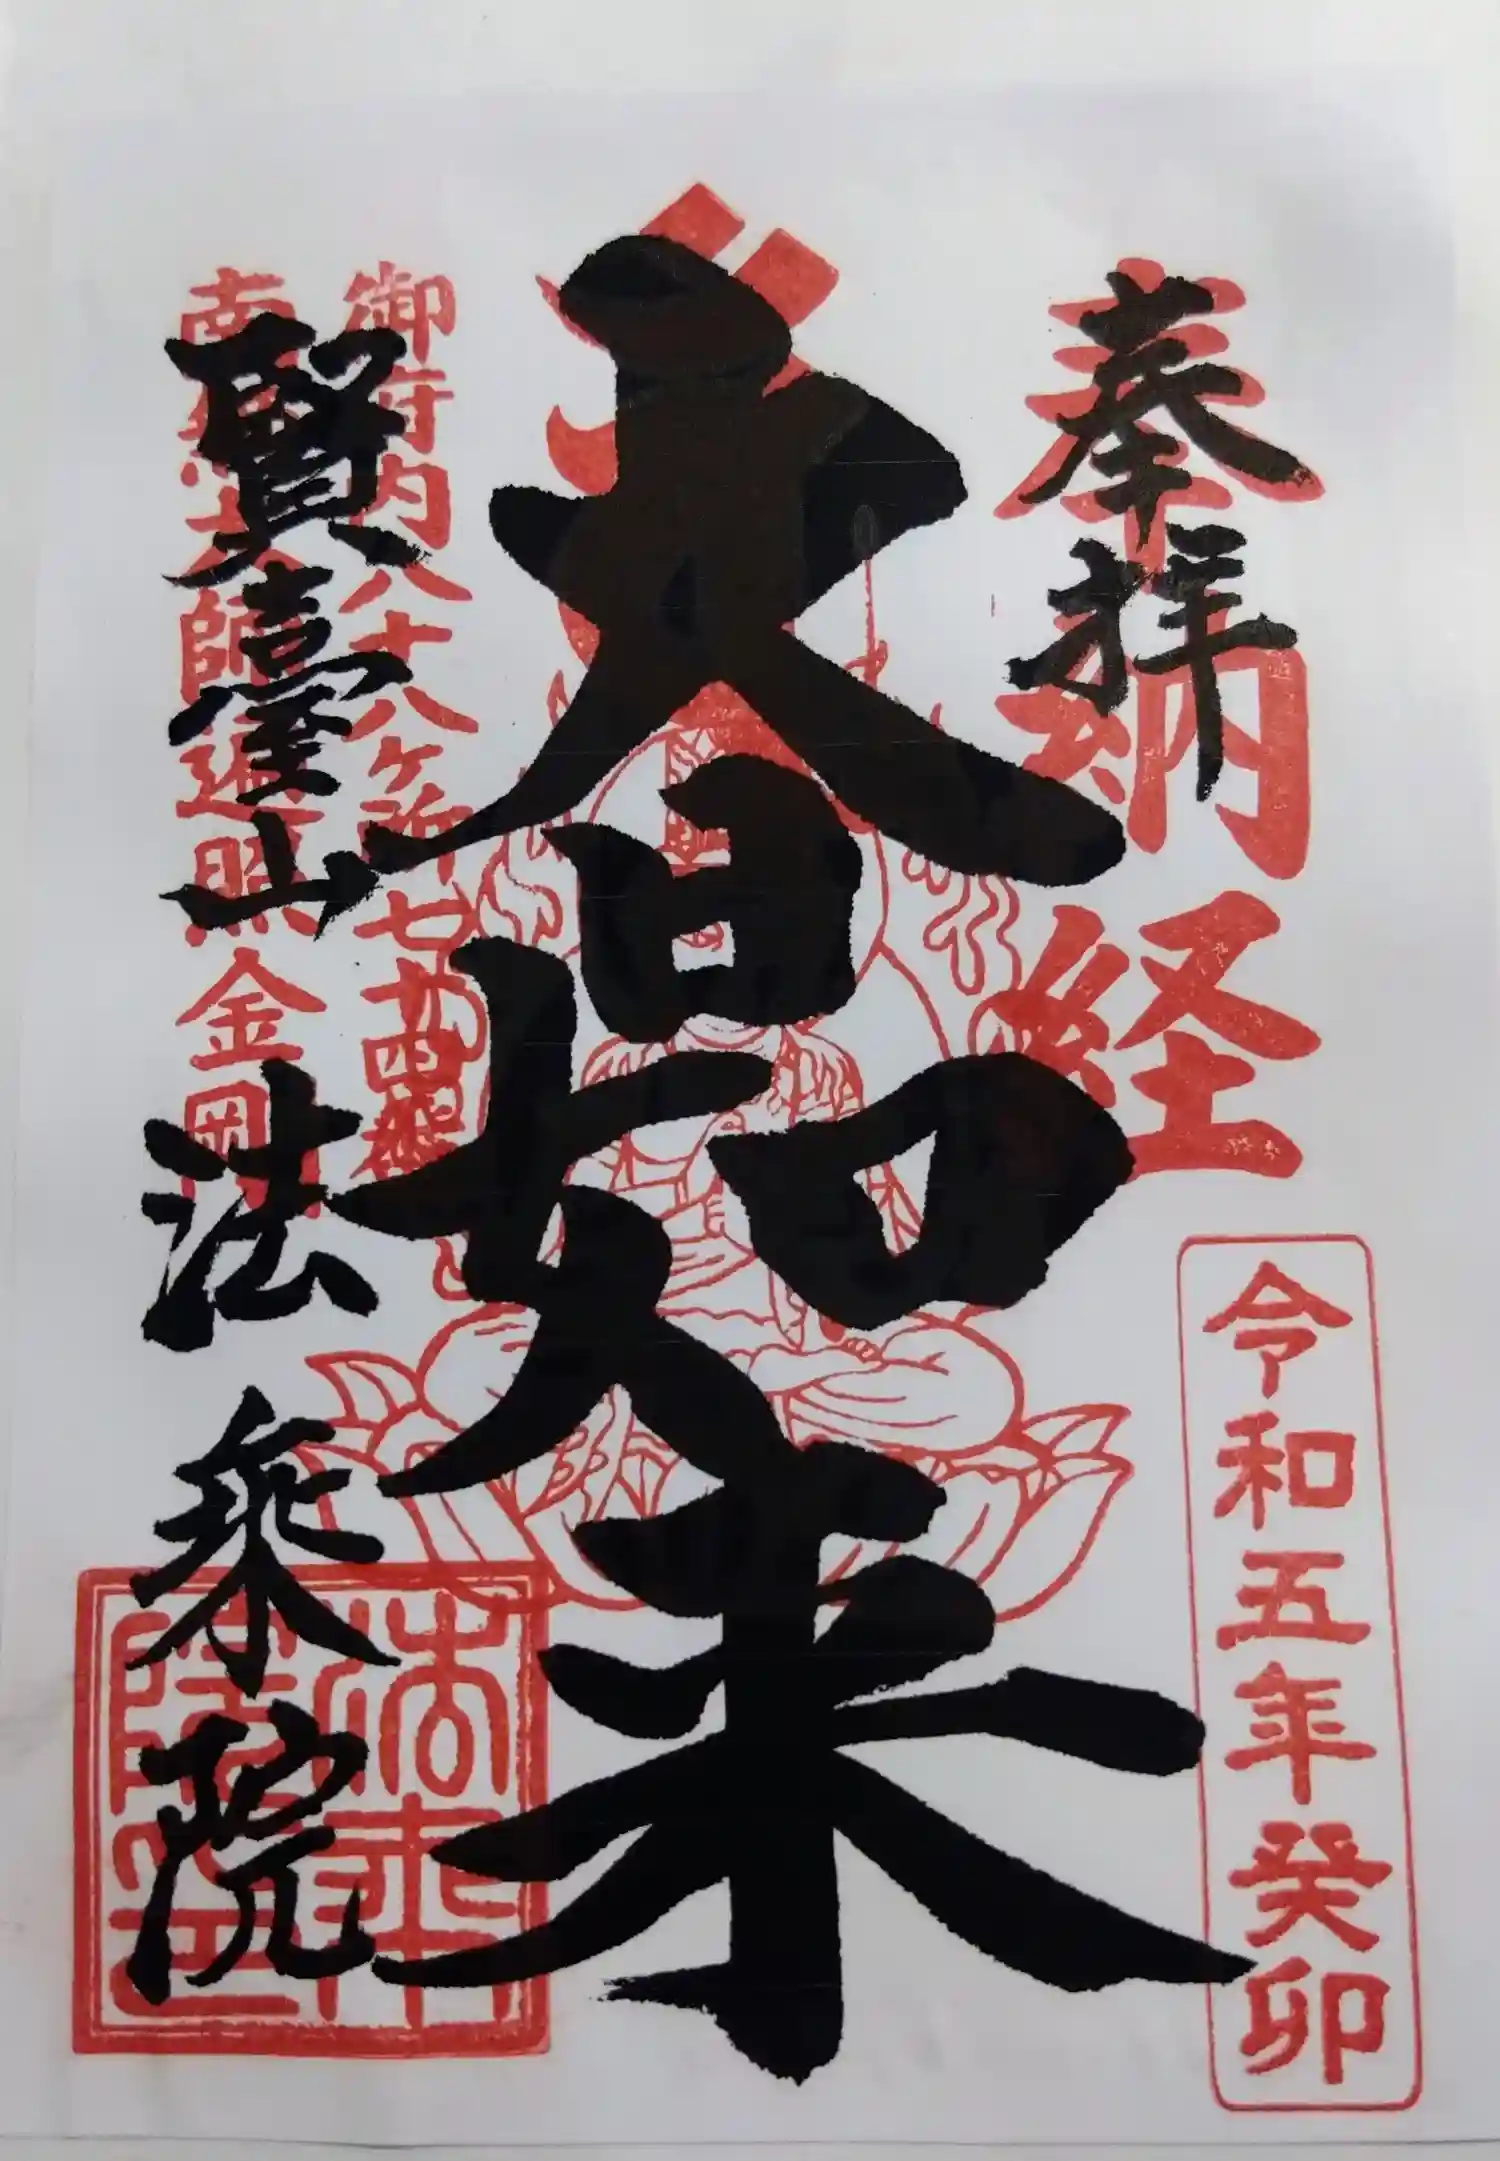 奉拝
奉納経
令和五年癸卯
大日如来
御府内八十八ヶ所
南無大師遍照金剛
賢臺山
法乗院